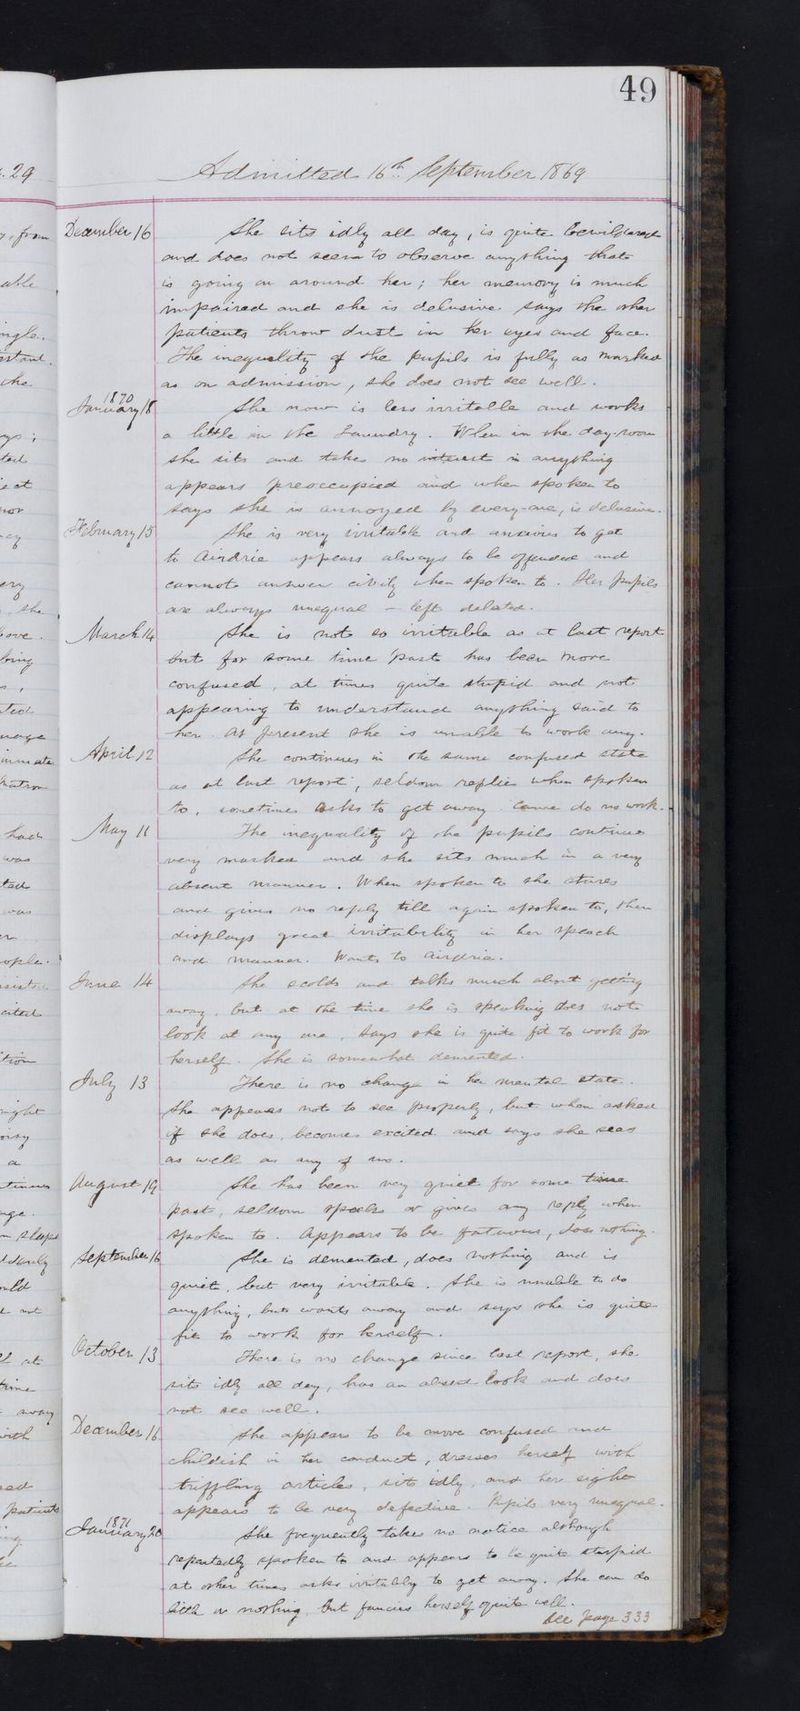 49
Admitted 16th September 1869
December 16 She sits idly all day, is quite bewildered
and does not seem to observe anything that
is going on around her; her memory is much
impaired and she is delusive says the other
patients throw dust in her eyes and face.
The inequality of the pupils is fully as marked
as on admission, she does not see well.
1870
January 18 She now is less irritable and works
a little in the Laundry. When in the day-room
she sits and takes no interest in anything
appears preoccupied and when spoken to
says she is annoyed by every-one, is delusive.
February 15 She is very irritable and anxious to get
to Airdrie appears always to be offended and
cannot answer civily when spoken to. Her pupils
are always unequal – left dilated.
March 14 She is not so irritable as at last report
but for some time past has been more
confused, at times quite stupid and not
appearing to understand anything said to
her. At present she is unable to work any.
April 12 She continues in the same confused state
as at last report, seldom replies when spoken
to, sometimes asks to get away. Can do no work.
May 11 The inequality of the pupils continues
very marked and she sits much in a very
absent manner. When spoken to she stares
and gives no reply till again spoken to, then
displays great irritability in her speech
and manner. Wants to Airdrie.
June 14 She scolds and talks much about getting
away, but at the time she is speaking does not
look at any one, says she is quite fit to work for
herself. She is somewhat demented.
July 13 There is no change in her mental state.
She appears not to see properly, but when asked
if she does, becomes excited and says she sees
as well as any of us.
August 19 She has been very quiet for some time
past, seldom speaks or gives any reply when
spoken to. Appears to be fatuous, does nothing.
September 16 She is demented, does nothing and is
quiet, but very irritable. She is unable to do
anything, but wants away and says she is quite
fit to work for herself.
October 13 There is no change since last report, she
sits idly all day, has an absent look and does
not see well.
December 16 She appears to be more confused and
childish in her conduct, dresses herself with
triffling articles, sits idly, and her sight
appears to be very defective. Pupils very unequal.
1871
January 20 She frequently takes no notice although
repeatedly spoken to and appears to be quite stupid
at other times asks irritably to get away. She can do
little or nothing, but fancies herself quite well.
See page 333